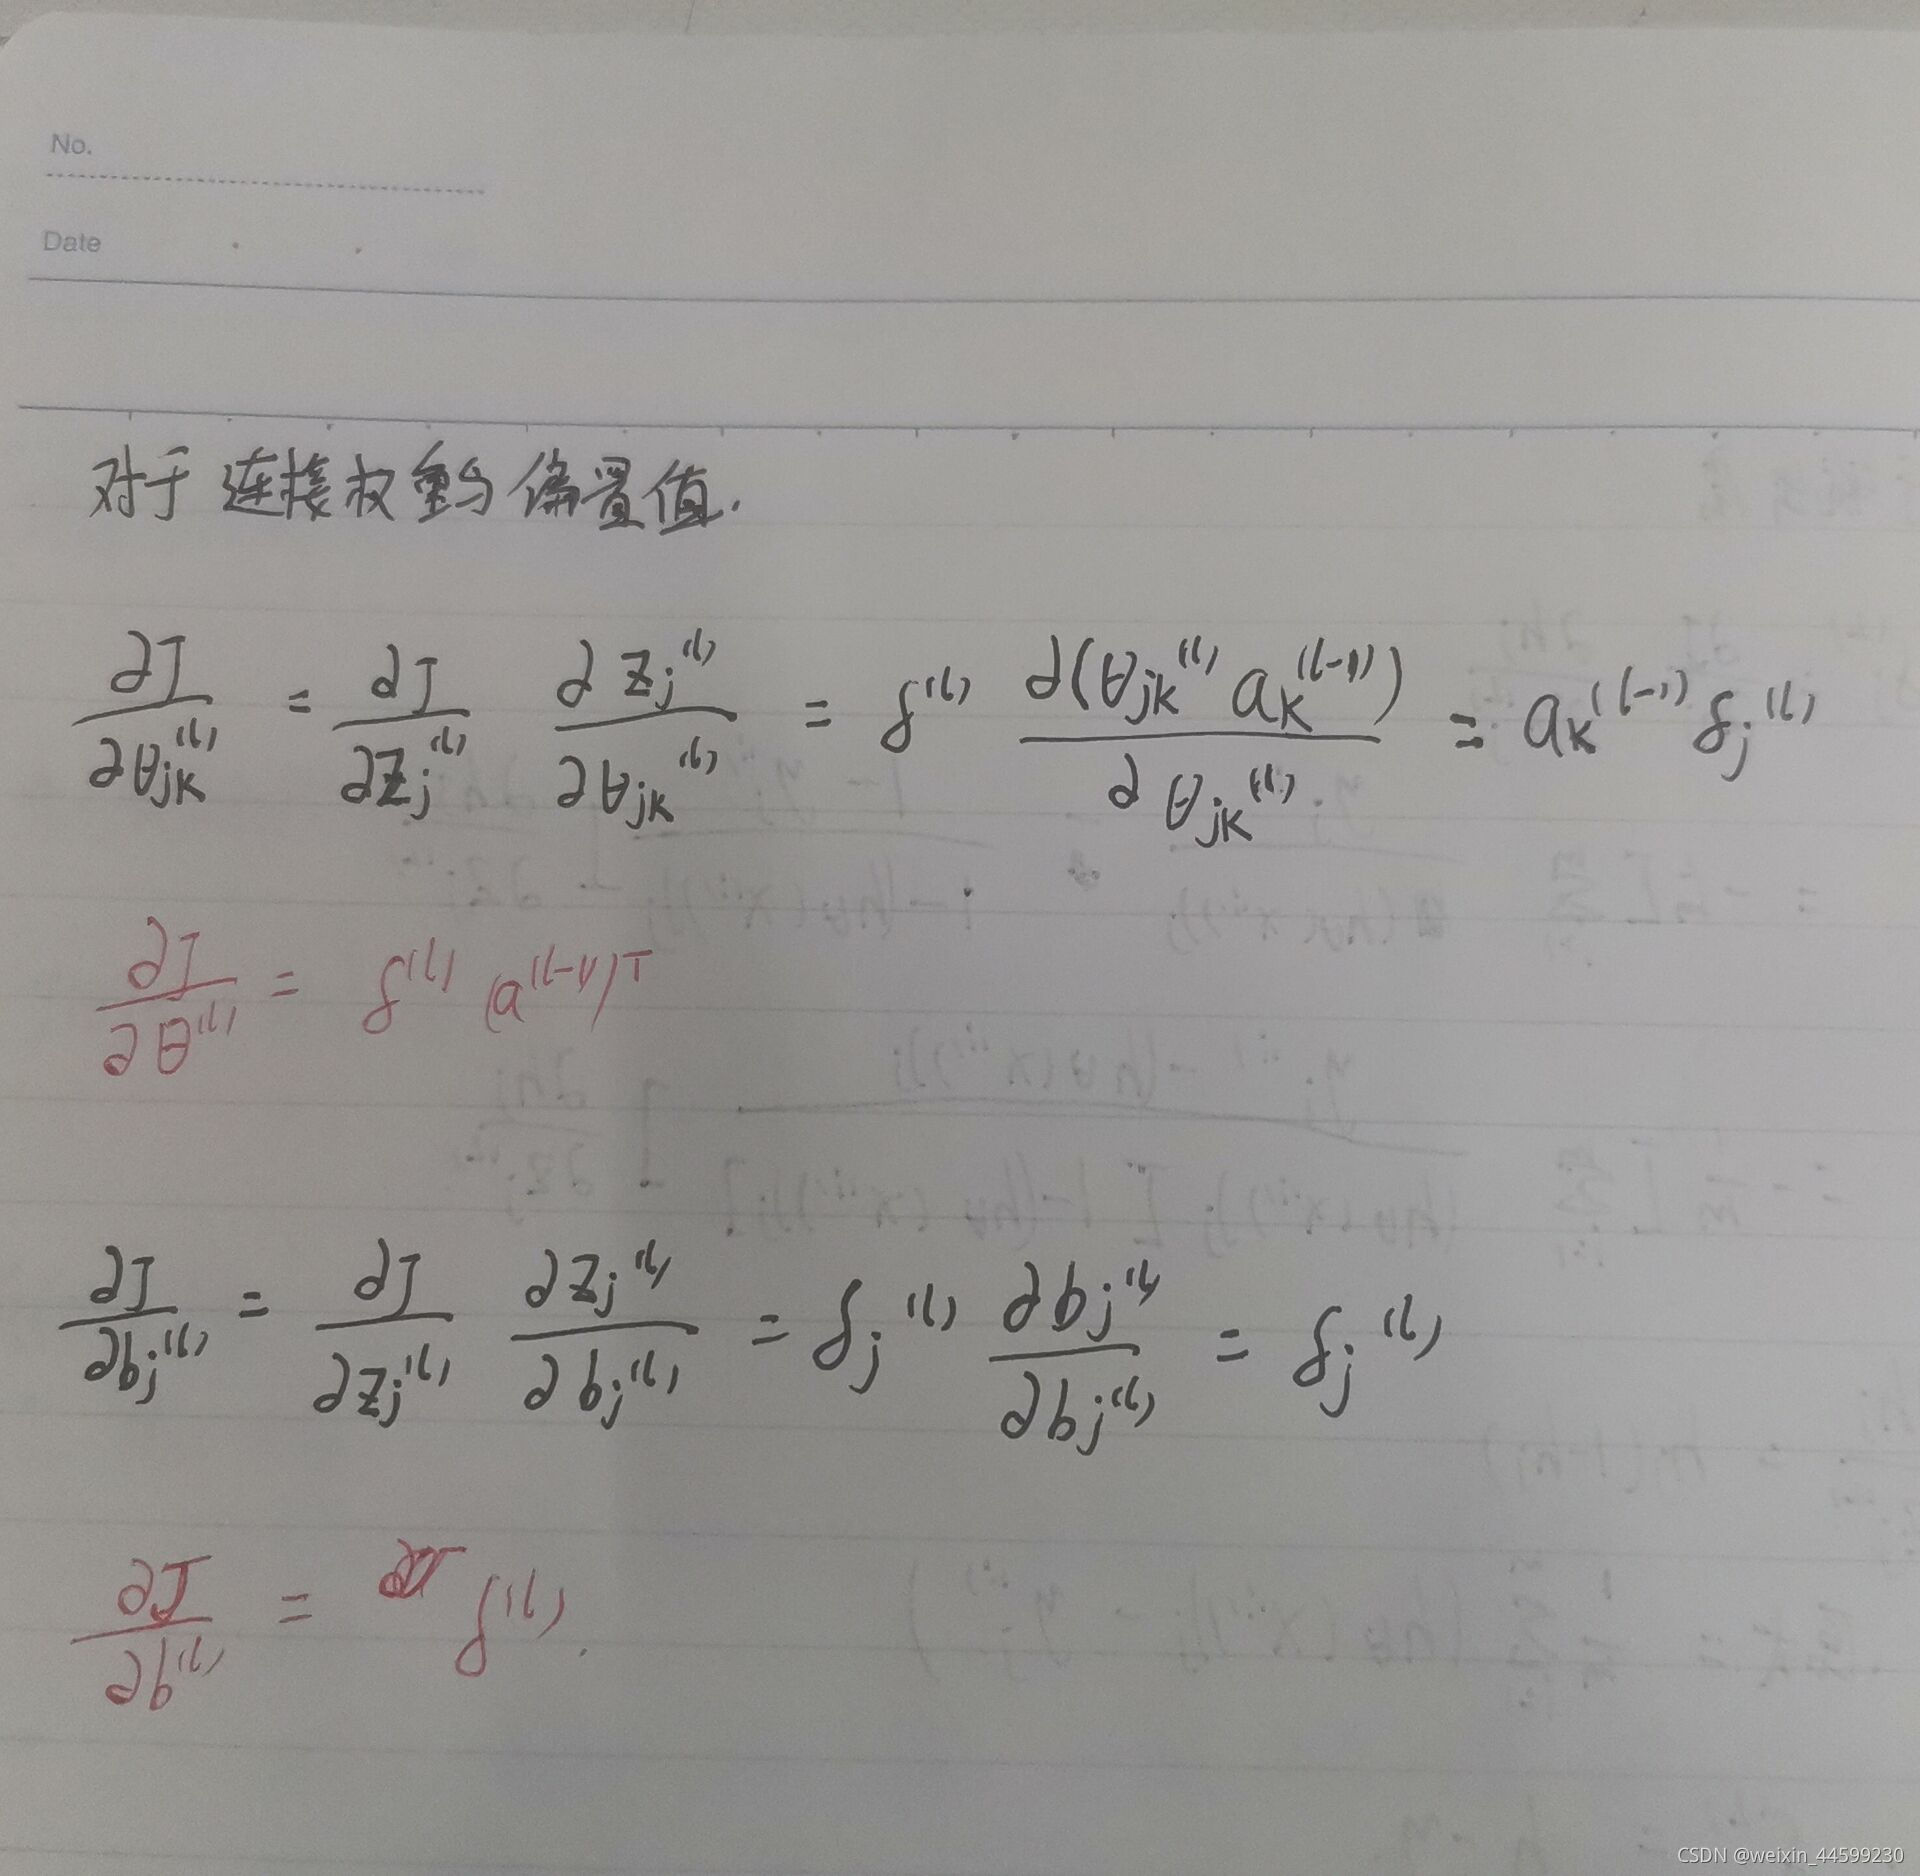 No.
Date
对于连接权重与偏置值.
∂J/∂θjk^(l) = ∂J/∂zj^(l) ∂zj^(l)/∂θjk^(l) = δ^(l) ∂(θjk^(l) ak^(l-1))/∂θjk^(l) = ak^(l-1) δj^(l)
∂J/∂θ^(l) = δ^(l) (a^(l-1))^T
∂J/∂bj^(l) = ∂J/∂zj^(l) ∂zj^(l)/∂bj^(l) = δj^(l) ∂bj^(l)/∂bj^(l) = δj^(l)
∂J/∂b^(l) = δ^(l).
CSDN @weixin_44599230